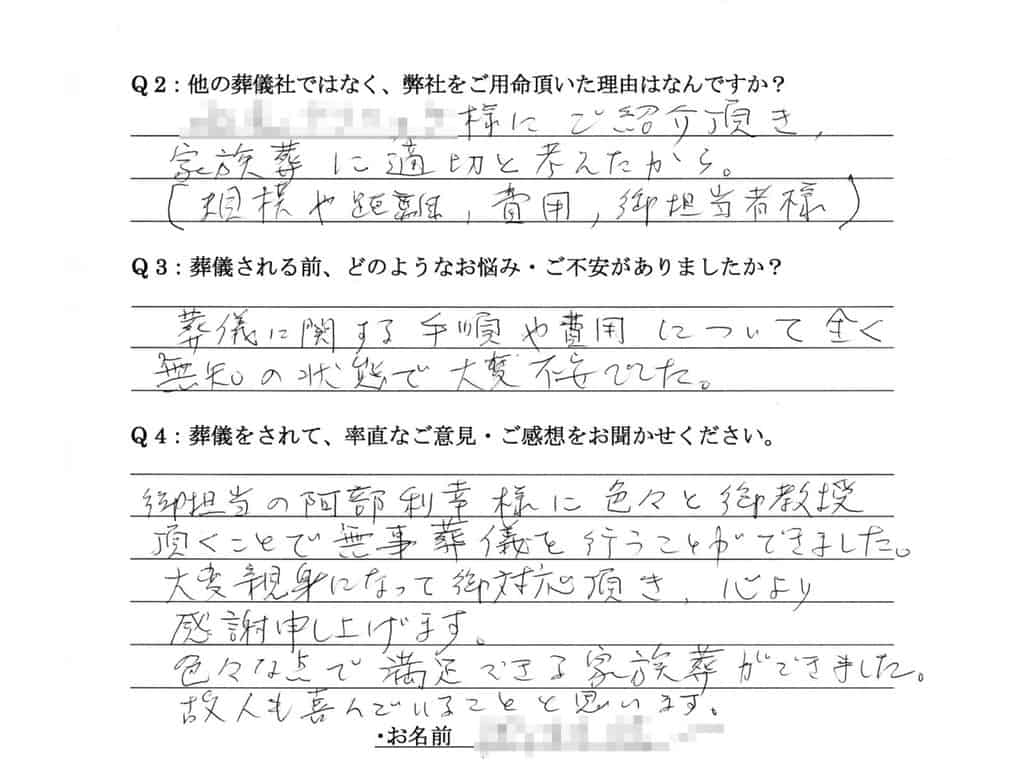 Q2:他の葬儀社ではなく、弊社をご用命頂いた理由はなんですか？
様にご紹介頂き,
家族葬に適切と考えたから。
(規模や距離,費用,御担当者様)
Q3:葬儀される前、どのようなお悩み・ご不安がありましたか？
葬儀に関する手順や費用について全く
無知の状態で大変不安でした。
Q4:葬儀をされて、率直なご意見・ご感想をお聞かせください。
御担当の阿部利幸様に色々と御教授
頂くことで無事葬儀を行うことができました。
大変親身になって御対応頂き,心より
感謝申し上げます。
色々な点で満足できる家族葬ができました。
故人も喜んでいることと思います。
・お名前